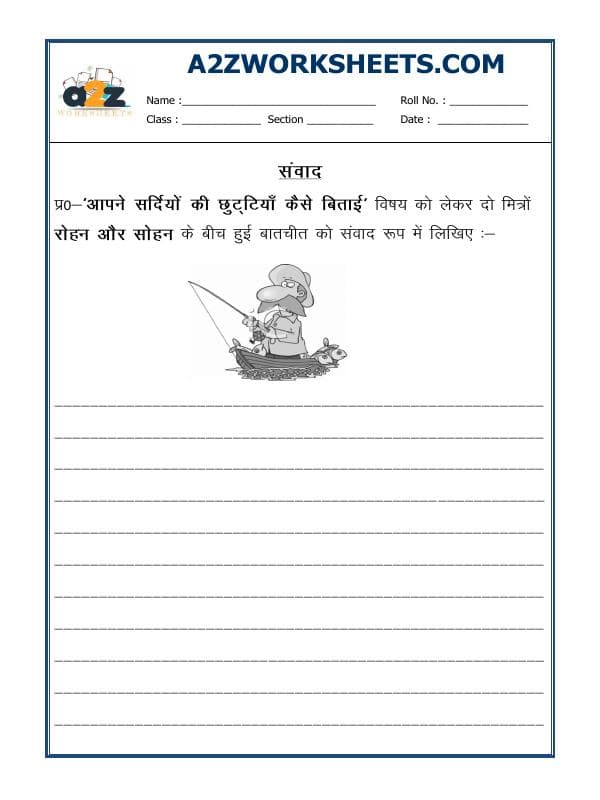 A2ZWORKSHEETS.COM
a2z
WORKSHEETS
Name :______________________________ Roll No. : ____________
Class : ____________ Section __________ Date : ______________
संवाद
प्र०–‘आपने सर्दियों की छुट्टियाँ कैसे बिताई’ विषय को लेकर दो मित्रों
रोहन और सोहन के बीच हुई बातचीत को संवाद रूप में लिखिए :–